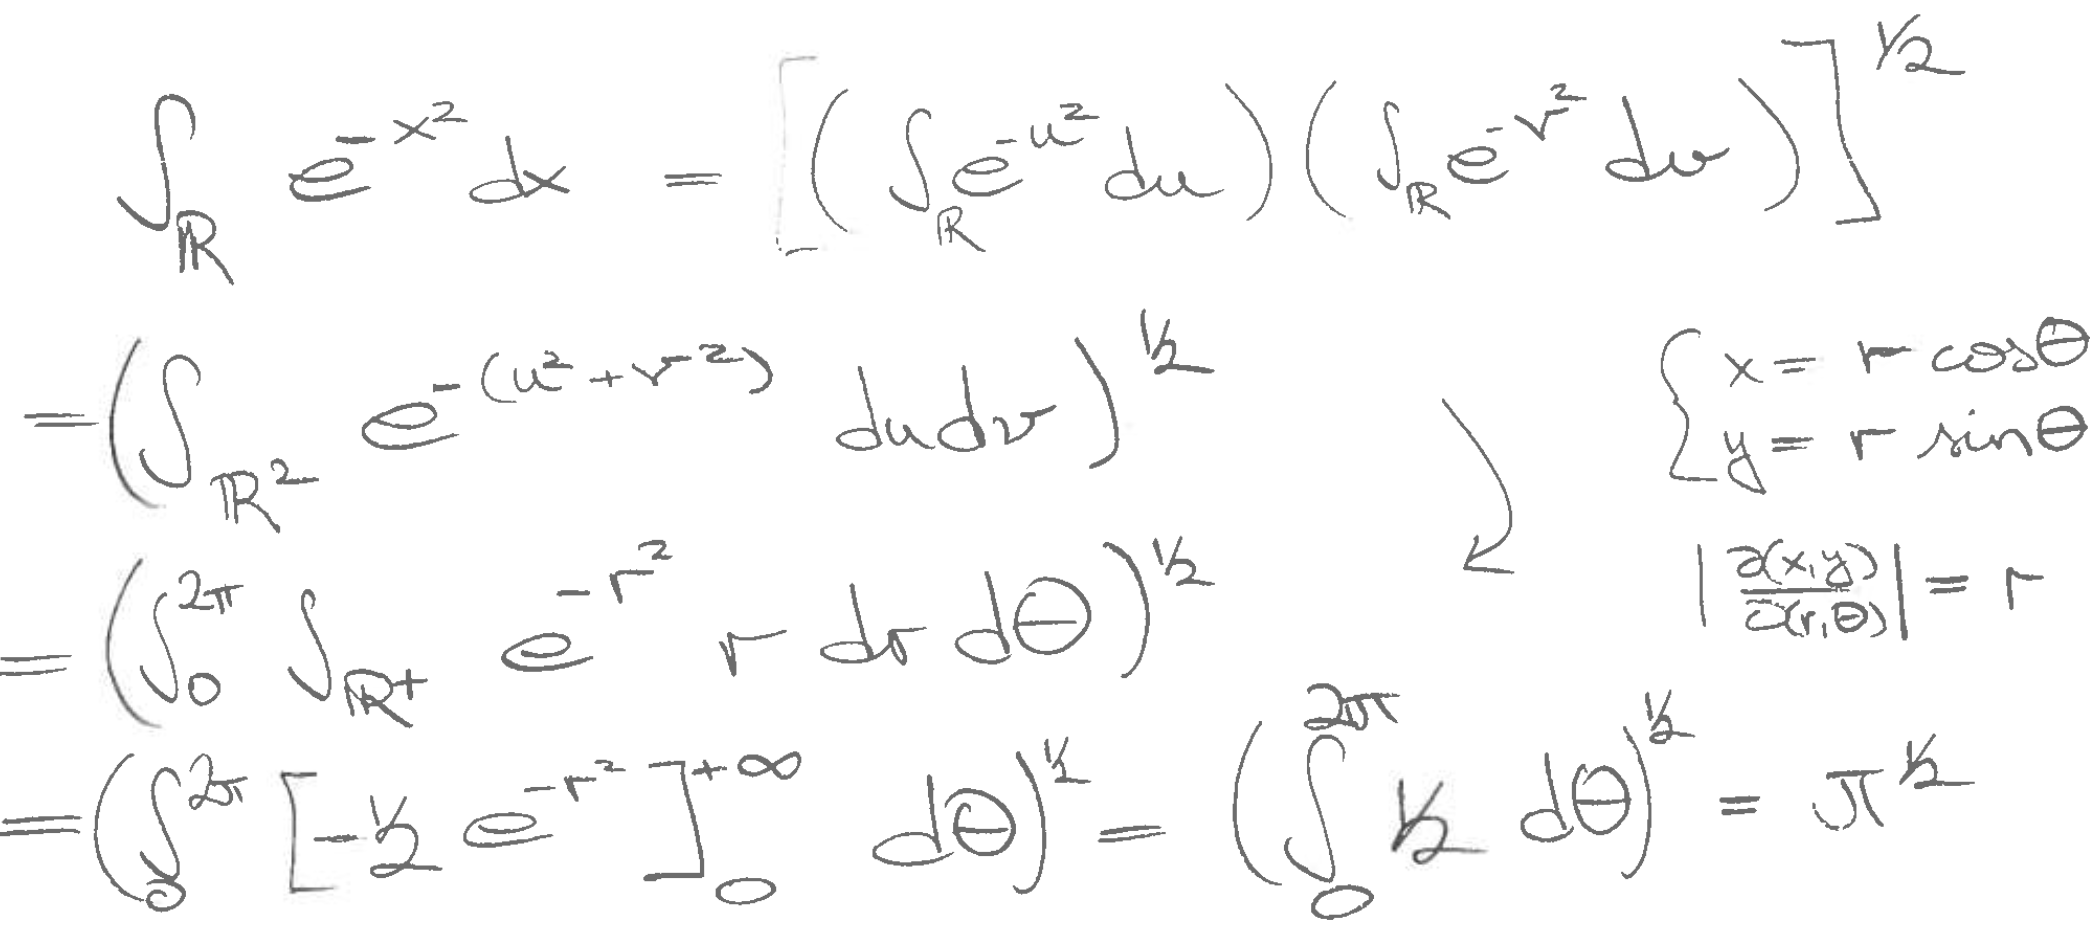 ∫_ℝ e^{-x²} dx = [(∫_ℝ e^{-u²} du)(∫_ℝ e^{-v²} dv)]^{1/2}
= (∫_{ℝ²} e^{-(u²+v²)} du dv)^{1/2}
{ x = r cosθ
y = r sinθ
|∂(x,y)/∂(r,θ)| = r
= (∫_0^{2π} ∫_{ℝ+} e^{-r²} r dr dθ)^{1/2}
= (∫_0^{2π} [-1/2 e^{-r²}]_0^{+∞} dθ)^{1/2} = (∫_0^{2π} 1/2 dθ)^{1/2} = π^{1/2}